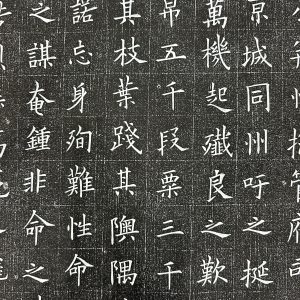 州管府司
京城同州吁之挺
萬機起殲良之歎
帛五千段粟三千
其枝葉踐其隩隅
諾忘身殉難性命
之謀奄鍾非命之